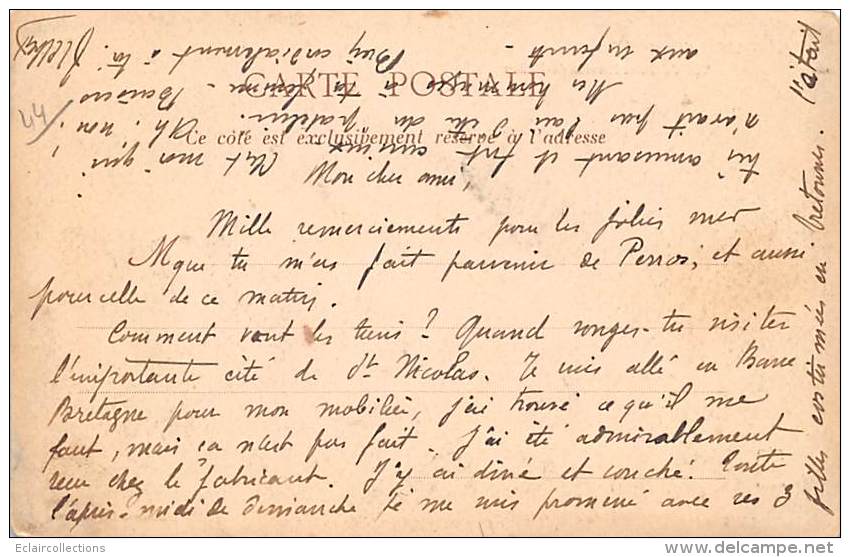 44/
CARTE POSTALE
Ce côté est exclusivement réservé à l'adresse
Mon cher ami,
Mille remerciements pour les jolies
que tu m'as fait parvenir de Perros, et aussi
pour celle de ce matin.
Comment vont les tiens? Quand songes-tu visiter
l'importante cité de St Nicolas. Je suis allé en Basse
Bretagne pour mon mobilier, j'ai trouvé ce qu'il me
faut, mais ça n'est pas fait. J'ai été admirablement
reçu chez le fabricant. J'y ai dîné et couché. Toute
l'après-midi de dimanche je me suis promené avec ses 3
filles costumées en bretonnes. C'était
très amusant et fort curieux. C'est moi qui
n'avait pas l'air Ah! non!
Mes hommages à ta femme - Baisers
aux enfants - Bien cordialement à toi.
Eclaircollections
delcampe.net